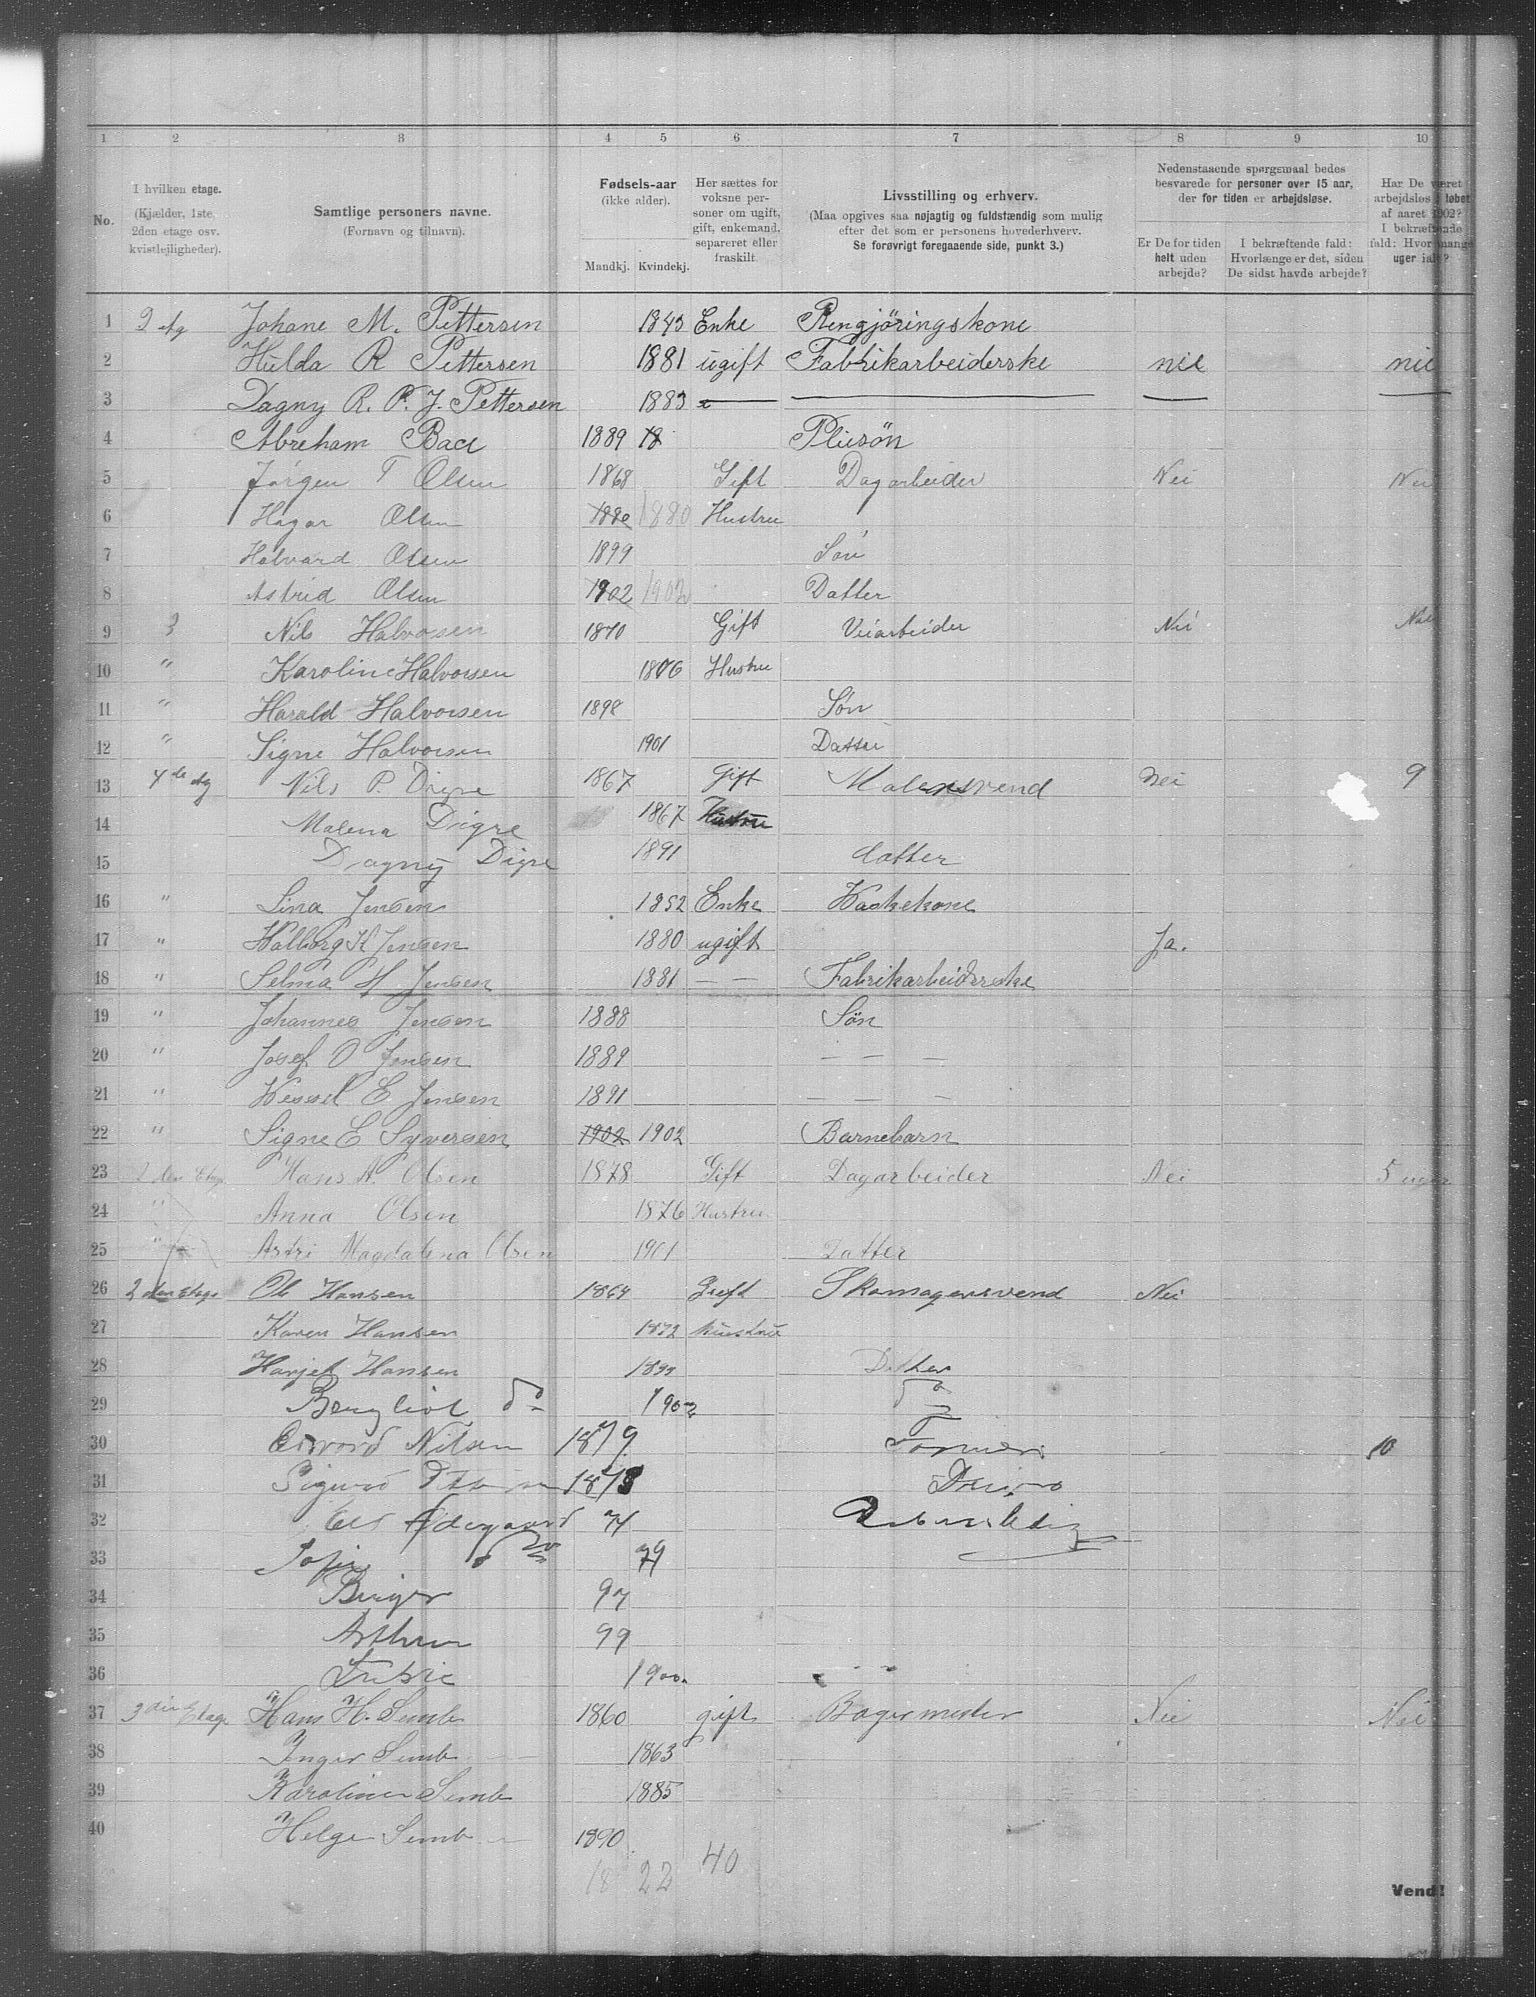 1 2 3 4 5 6 7 8 9 10
No.
I hvilken etage.
(Kjælder, 1ste,
2den etage osv.
kvistlejligheder).
Samtlige personers navne.
(Fornavn og tilnavn).
Fødsels-aar
(ikke alder).
Mandkj. Kvindekj.
Her sættes for
voksne per-
soner om ugift,
gift, enkemand,
separeret eller
fraskilt
Livsstilling og erhverv.
(Maa opgives saa nøjagtig og fuldstændig som mulig
efter det som er personens hovederhverv.
Se forøvrigt foregaaende side, punkt 3.)
Nedenstaaende spørgsmaal bedes
besvarede for personer over 15 aar,
der for tiden er arbejdsløse.
Er De for tiden
helt uden
arbejde?
I bekræftende fald:
Hvorlænge er det, siden
De sidst havde arbejde?
Har De været
arbejdsløs i løbet
af aaret 1902?
I bekræftende
fald: Hvor mange
uger ialt?
1 2 etg Johane M. Pettersen 1845 Enke Rengjöringskone
2 Hulda R Pettersen 1881 ugift Fabrikarbeiderske nei nei
3 Dagny R. P. J. Pettersen 1883 — — — —
4 Abreham Bae 1889 18 Pliesön
5 Jørgen T Olsen 1868 Gift Dagarbeider Nei Nei
6 Hagar Olsen 1880 1880 Hustru
7 Halvard Olsen 1899 Søn
8 Astrid Olsen 1902 1902 Datter
9 3 Nils Halvorsen 1870 Gift Veiarbeider Nei Nei
10 " Karoline Halvorsen 1876 Hustru
11 " Harald Halvorsen 1898 Søn
12 " Signe Halvorsen 1901 Datter
13 4de etg Nils P. Digre 1867 Gift Malersvend Nei 9
14 Malena Digre 1867 Hustru
15 Dagny Digre 1891 datter
16 " Lina Jensen 1852 Enke Vaskekone
17 " Valborg K Jensen 1880 ugift Ja.
18 " Selma M Jensen 1881 — — Fabrikarbeiderske
19 " Johannes Jensen 1888 Søn
20 " Josef O Jensen 1889 — — —
21 " Wessel E Jensen 1891 — — —
22 " Signe E Syversen 1902 1902 Barnebarn
23 2den Etage Hans A. Olsen 1878 Gift Dagarbeider Nei 5 uger
24 " Anna Olsen 1876 Hustru
25 " Astri Magdalena Olsen 1901 Datter
26 2den Etage Ole Hansen 1864 Gieft Skomagersvend Nei
27 Karen Hansen 1872 huustru
28 Harjet Hansen 1899 Datter
29 Bergliot do 1902 do
30 Nilsen 1879 10
31 Sigurd 1878
32 71
33 Sofie do 79
34 Birger 97
35 Arthur 99
36 1900.
37 3die Etage Hans H. Semb 1860 gift Bagermester Nei Nei
38 Inger Semb 1863
39 Karoline Semb 1885
40 Helge Semb 1890
18 22 40
Vend!